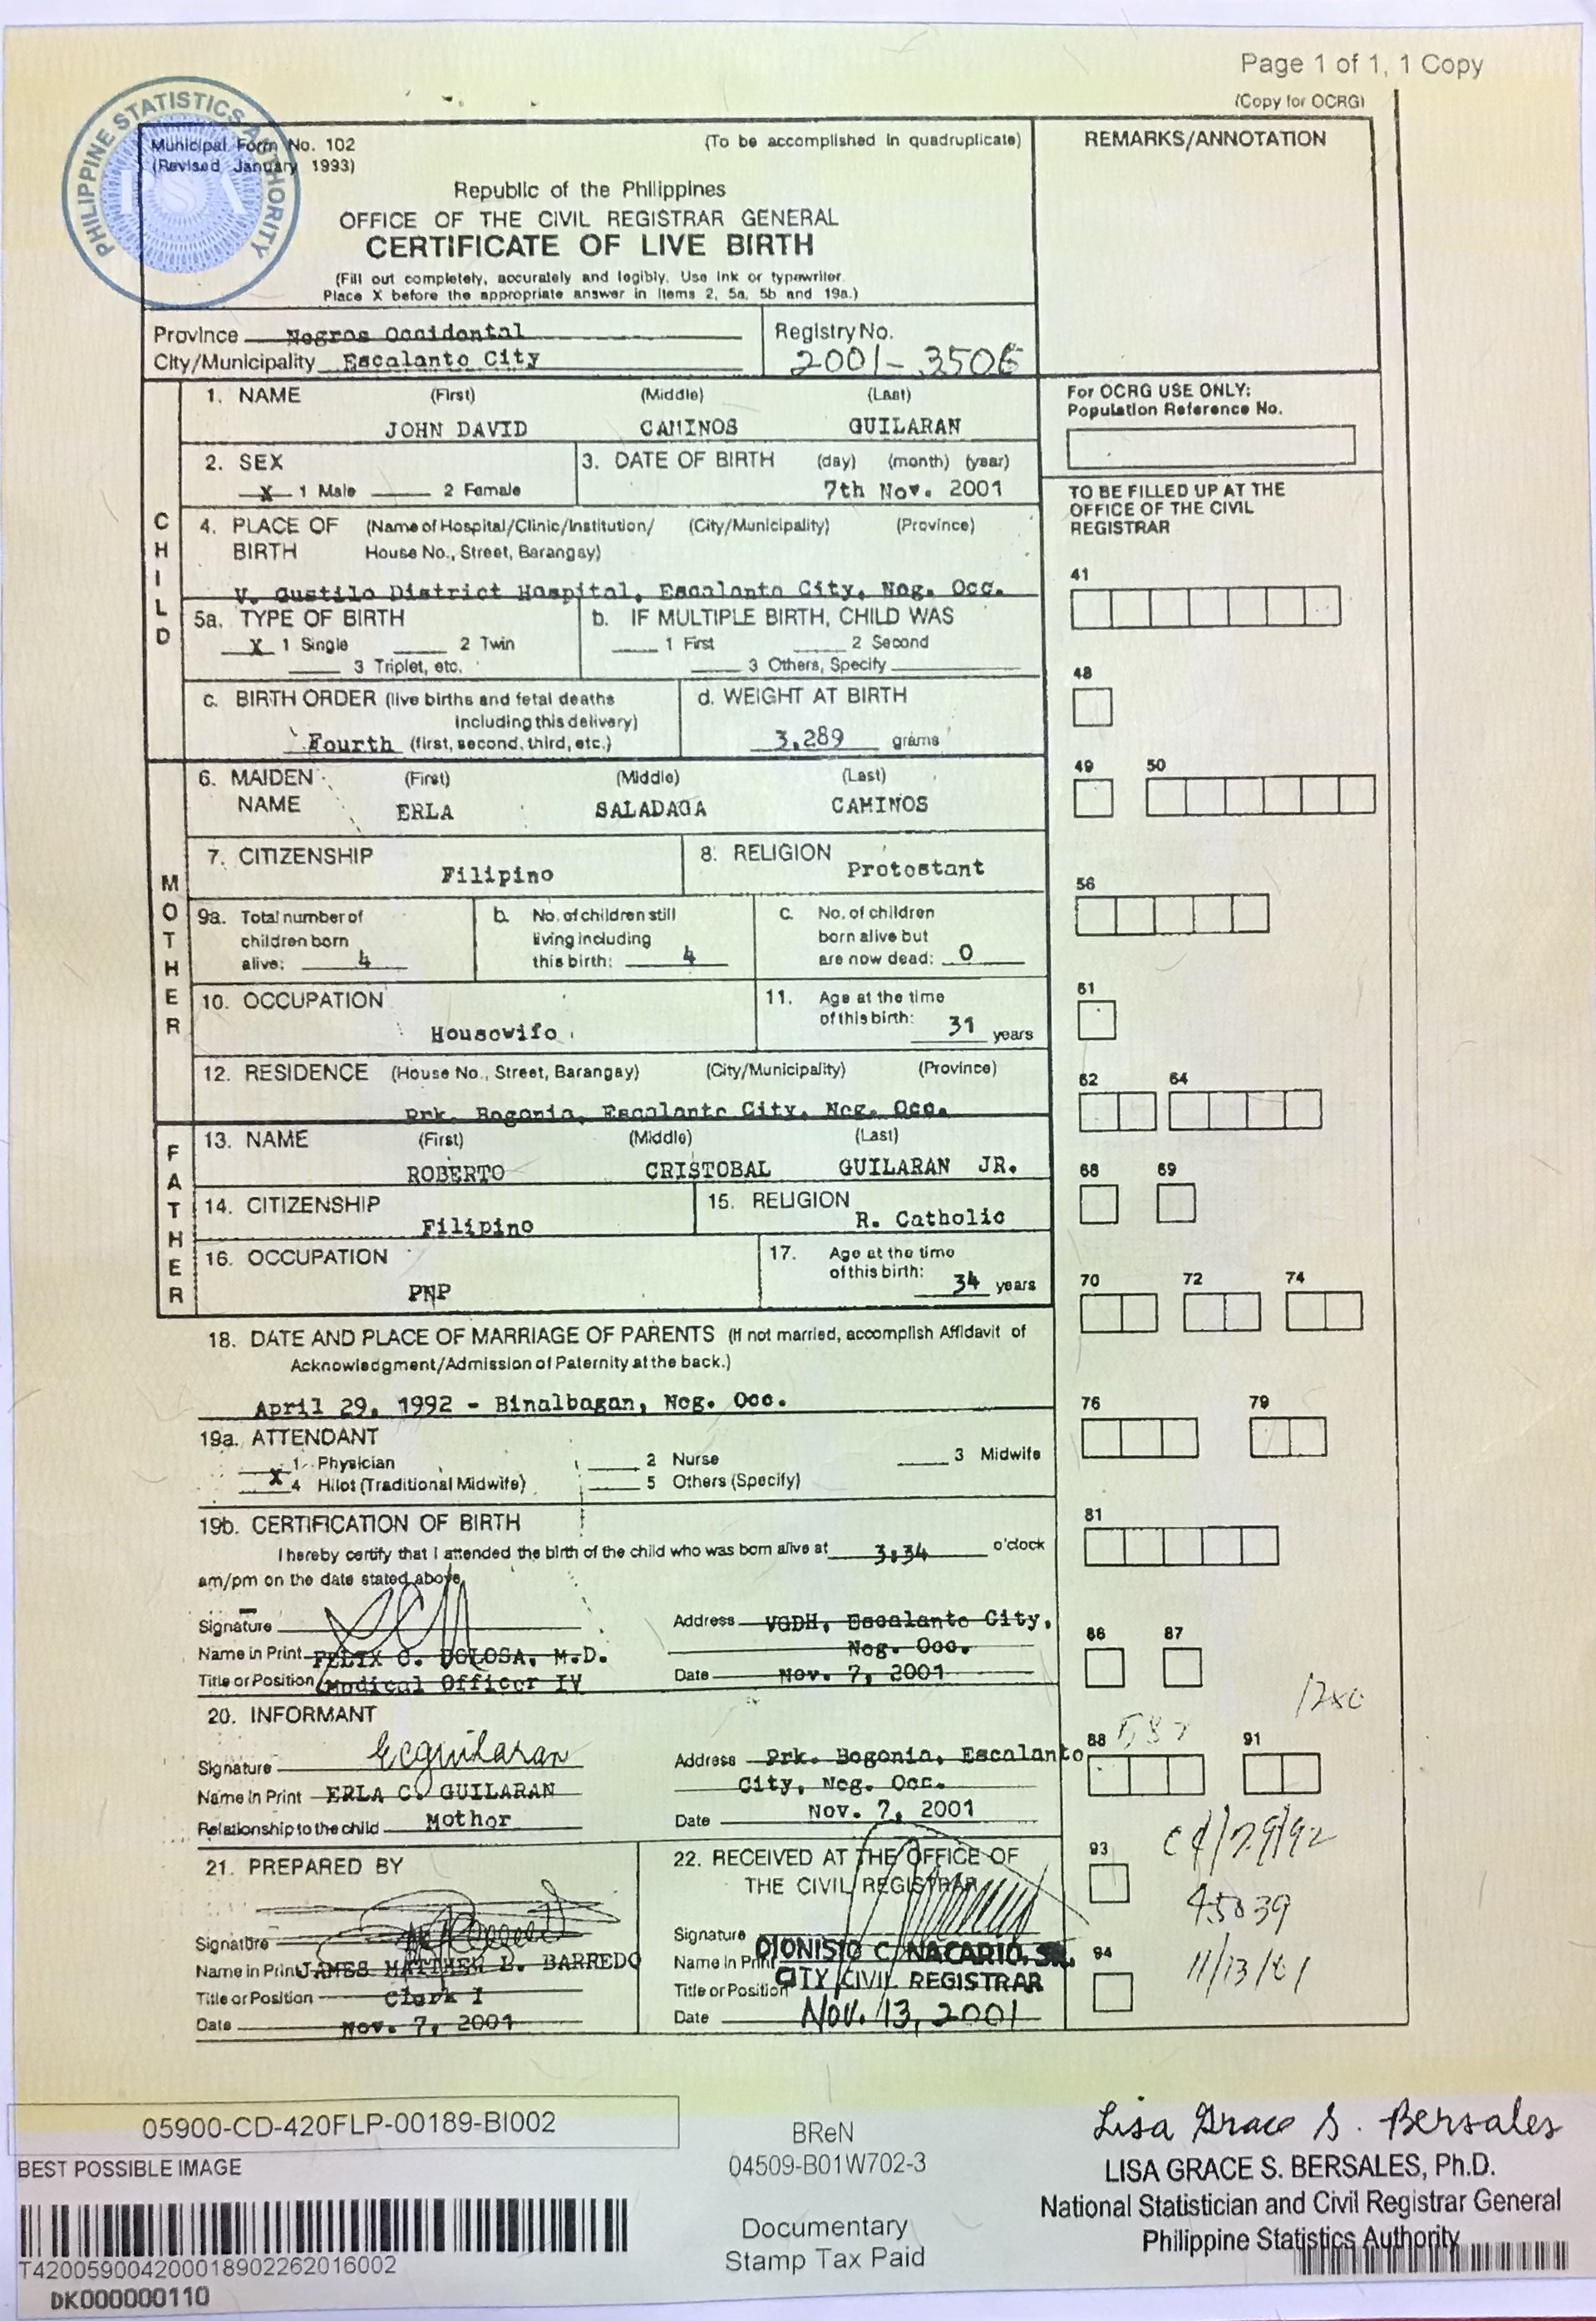 Page 1 of 1, 1 Copy
(Copy for OCRG)
PHILIPPINE STATISTICS AUTHORITY
PSA
Municipal Form No. 102
(Revised January 1993)
(To be accomplished in quadruplicate)
Republic of the Philippines
OFFICE OF THE CIVIL REGISTRAR GENERAL
CERTIFICATE OF LIVE BIRTH
(Fill out completely, accurately and legibly. Use ink or typewriter.
Place X before the appropriate answer in items 2, 5a, 5b and 19a.)
REMARKS/ANNOTATION
Province Negros Occidental
City/Municipality Escalante City
Registry No.
2001-3506
CHILD
1. NAME (First) (Middle) (Last)
JOHN DAVID CAMINOS GUILARAN
For OCRG USE ONLY:
Population Reference No.
2. SEX
X 1 Male 2 Female
3. DATE OF BIRTH (day) (month) (year)
7th Nov. 2001
TO BE FILLED UP AT THE
OFFICE OF THE CIVIL
REGISTRAR
4. PLACE OF (Name of Hospital/Clinic/Institution/ (City/Municipality) (Province)
BIRTH House No., Street, Barangay)
V. Gustilo District Hospital, Escalante City, Neg. Occ.
41
5a. TYPE OF BIRTH
X 1 Single 2 Twin
3 Triplet, etc.
b. IF MULTIPLE BIRTH, CHILD WAS
1 First 2 Second
3 Others, Specify
48
c. BIRTH ORDER (live births and fetal deaths
including this delivery)
Fourth (first, second, third, etc.)
d. WEIGHT AT BIRTH
3,289 grams
MOTHER
6. MAIDEN (First) (Middle) (Last)
NAME ERLA SALADAGA CAMINOS
49 50
7. CITIZENSHIP
Filipino
8. RELIGION
Protestant
56
9a. Total number of
children born
alive: 4
b. No. of children still
living including
this birth: 4
c. No. of children
born alive but
are now dead: 0
10. OCCUPATION
Housewife
11. Age at the time
of this birth: 31 years
61
12. RESIDENCE (House No., Street, Barangay) (City/Municipality) (Province)
Prk. Begonia, Escalante City, Neg. Occ.
62 64
FATHER
13. NAME (First) (Middle) (Last)
ROBERTO CRISTOBAL GUILARAN JR.
68 69
14. CITIZENSHIP
Filipino
15. RELIGION
R. Catholic
16. OCCUPATION
PNP
17. Age at the time
of this birth: 34 years
70 72 74
18. DATE AND PLACE OF MARRIAGE OF PARENTS (If not married, accomplish Affidavit of
Acknowledgment/Admission of Paternity at the back.)
April 29, 1992 - Binalbagan, Neg. Occ.
76 79
19a. ATTENDANT
1 Physician 2 Nurse 3 Midwife
X 4 Hilot (Traditional Midwife) 5 Others (Specify)
81
19b. CERTIFICATION OF BIRTH
I hereby certify that I attended the birth of the child who was born alive at 3:34 o'clock
am/pm on the date stated above.
Signature
Name in Print FELIX C. DOLOSA, M.D.
Title or Position Medical Officer IV
Address VGDH, Escalante City,
Neg. Occ.
Date Nov. 7, 2001
86 87
20. INFORMANT
Signature Ecguilaran
Name in Print ERLA C. GUILARAN
Relationship to the child Mother
Address Prk. Begonia, Escalante
City, Neg. Occ.
Date Nov. 7, 2001
88 91
93
04/29/92
45039
11/13/01
94
21. PREPARED BY
Signature
Name in Print JAMES MATTHEW B. BARREDO
Title or Position Clerk I
Date Nov. 7, 2001
22. RECEIVED AT THE OFFICE OF
THE CIVIL REGISTRAR
Signature
Name in Print DIONISIO C. NACARIO, SR.
Title or Position CITY CIVIL REGISTRAR
Date Nov. 13, 2001
05900-CD-420FLP-00189-BI002
BEST POSSIBLE IMAGE
T420059004200018902262016002
DK000000110
BReN
04509-B01W702-3
Documentary
Stamp Tax Paid
Lisa Grace S. Bersales
LISA GRACE S. BERSALES, Ph.D.
National Statistician and Civil Registrar General
Philippine Statistics Authority